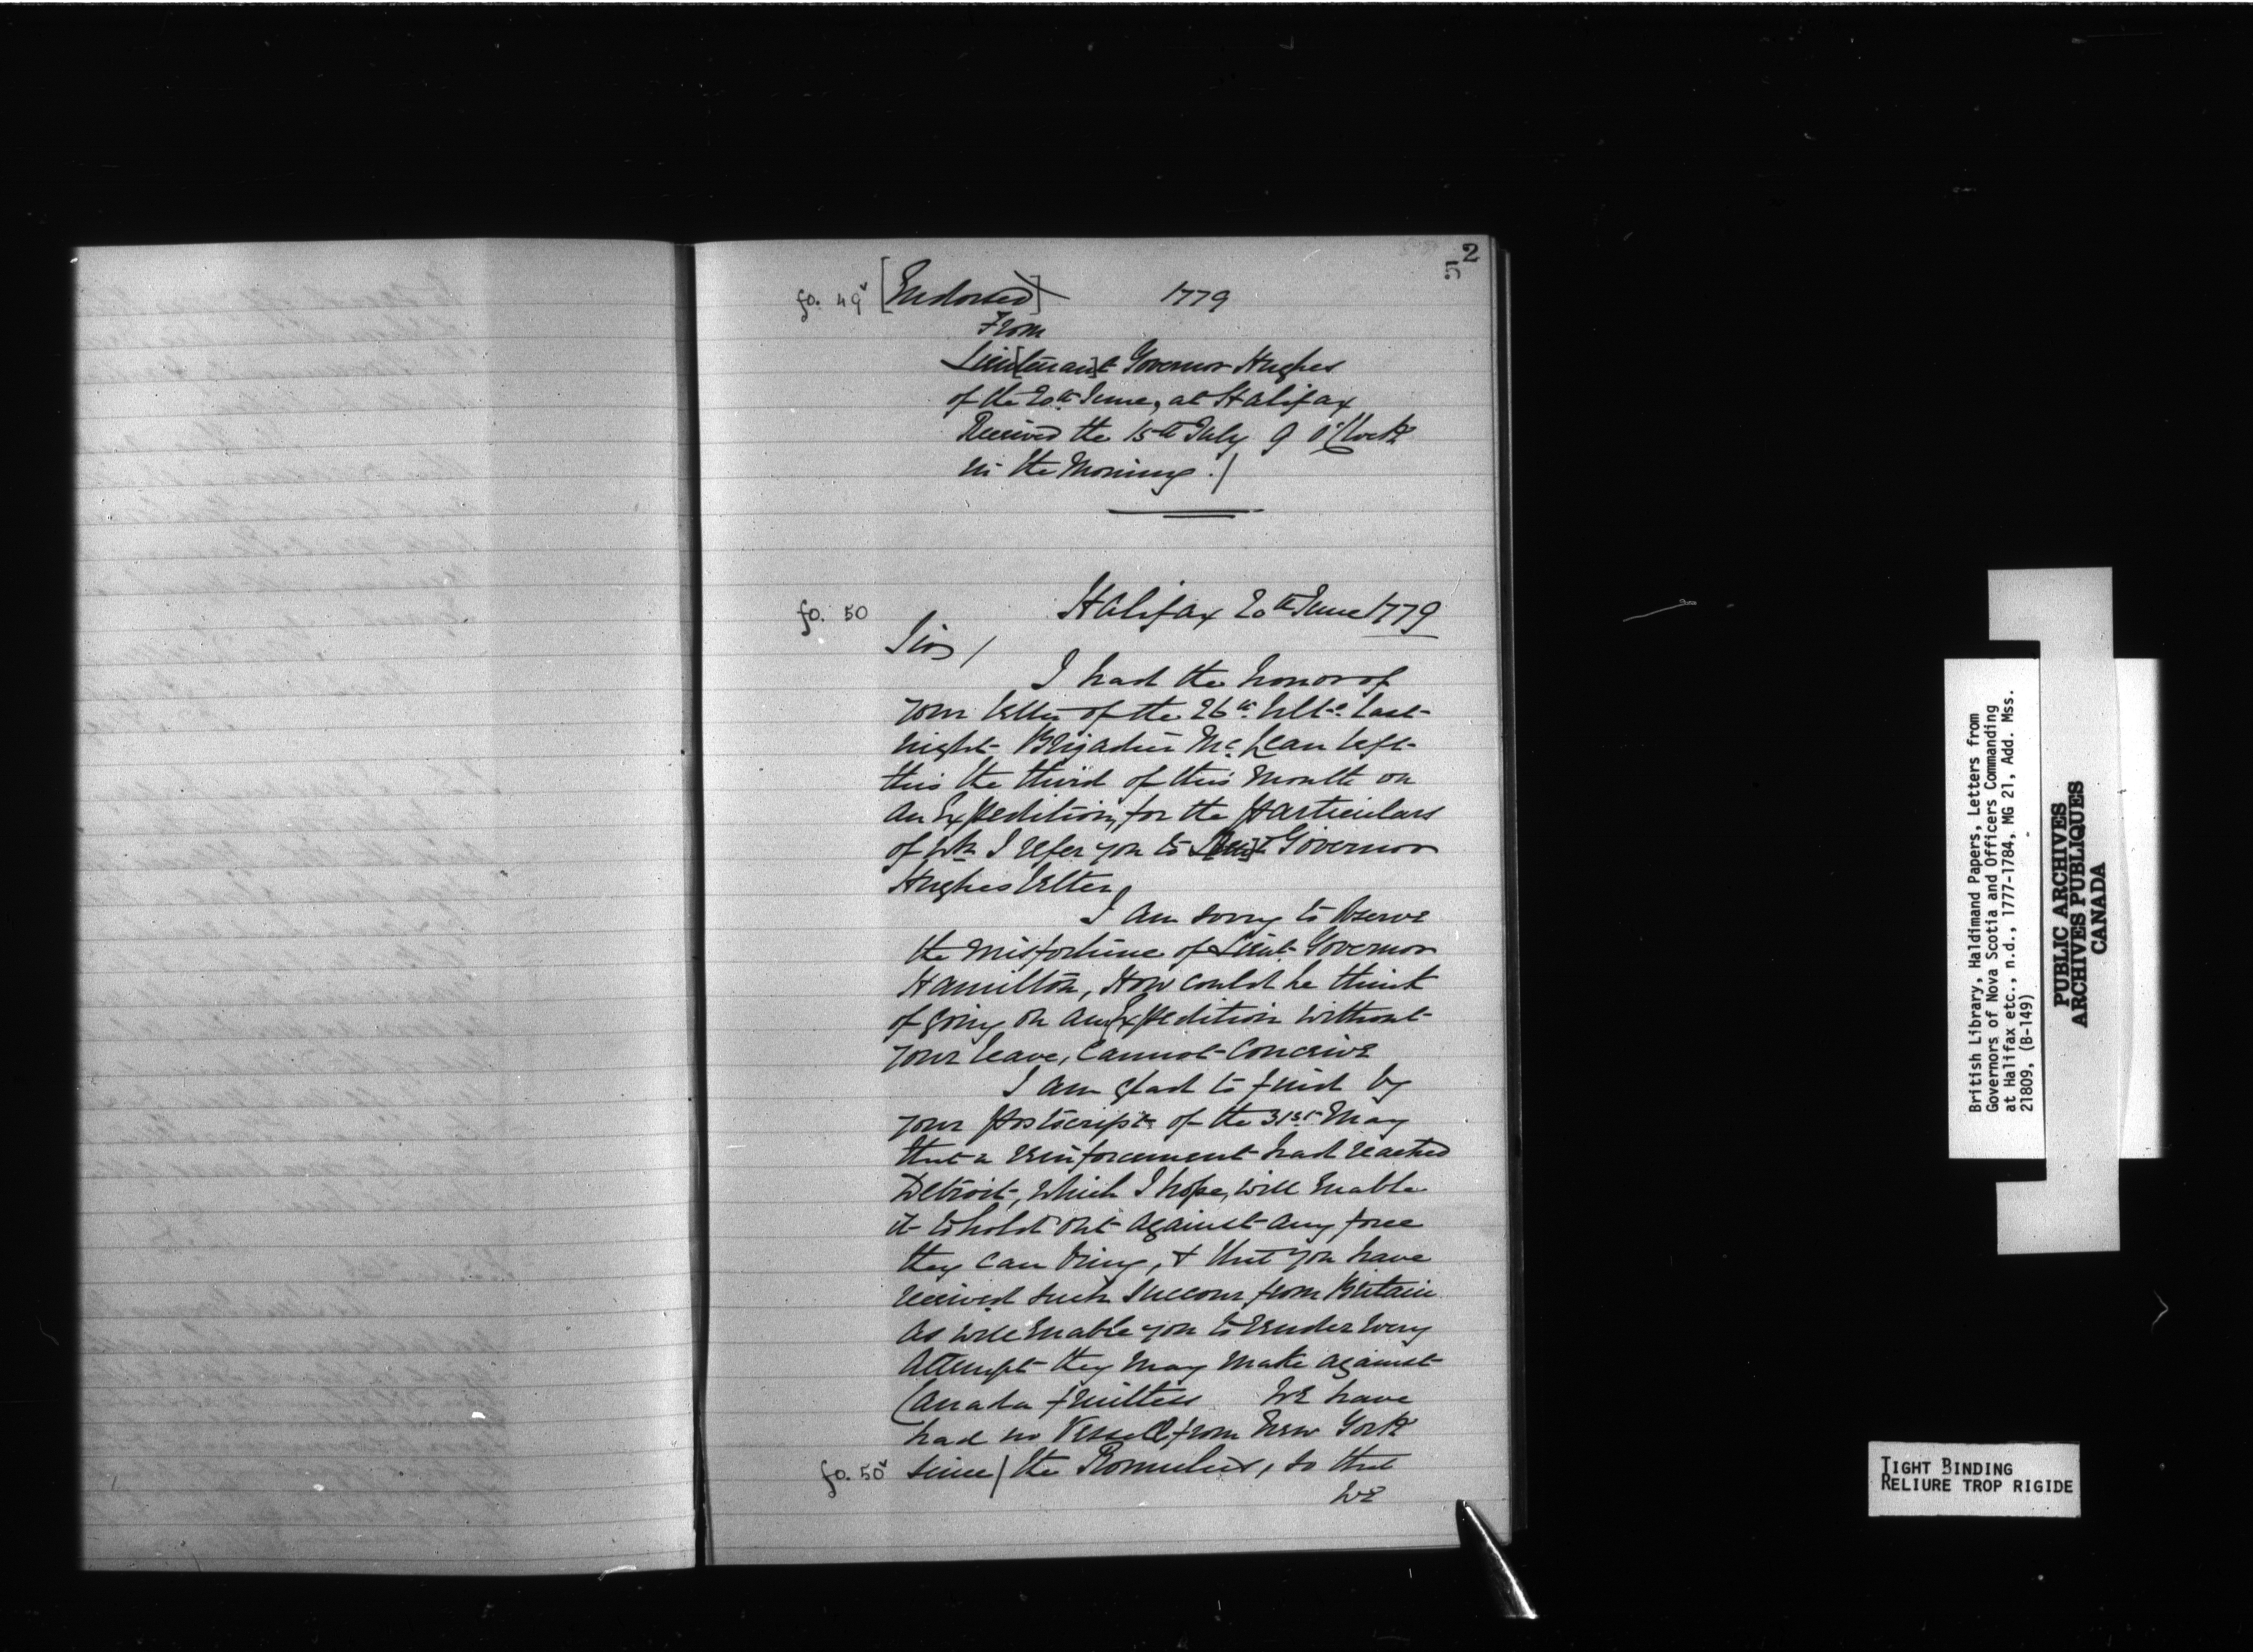 52
fo. 49v [Endorsed] 1779
From
Lieu[tenan]t Governor Hughes
of the 20th June, at Halifax
Received the 15th July 9 o'Clock
in the Morning./
fo. 50 Halifax 20th June 1779
Sir/
I had the honor of
your letter of the 26th Ult.o last
night Brigadier Mc Lean left
this the third of this Month on
an Expedition, for the particulars
of wh I refer you to Lieut Governor
Hughes letter,
I am sorry to observe
the misfortune of Lieut Governor
Hamilton, How could he think
of going on any Expedition without
your leave, Cannot Conceive
I am glad to find by
your postscript of the 31st May
that a reinforcement had reached
Detroit, which I hope, will enable
it to hold out against any force
they can bring, & that you have
received such Succour from Britain
as will enable you to render every
attempt they may make against
Canada fruitless We have
had no Vessell from New York
fo. 50v since/ the Romulus, so that
we
British Library, Haldimand Papers, Letters from
Governors of Nova Scotia and Officers Commanding
at Halifax etc., n.d., 1777-1784, MG 21, Add. Mss.
21809, (B-149)
PUBLIC ARCHIVES
ARCHIVES PUBLIQUES
CANADA
TIGHT BINDING
RELIURE TROP RIGIDE